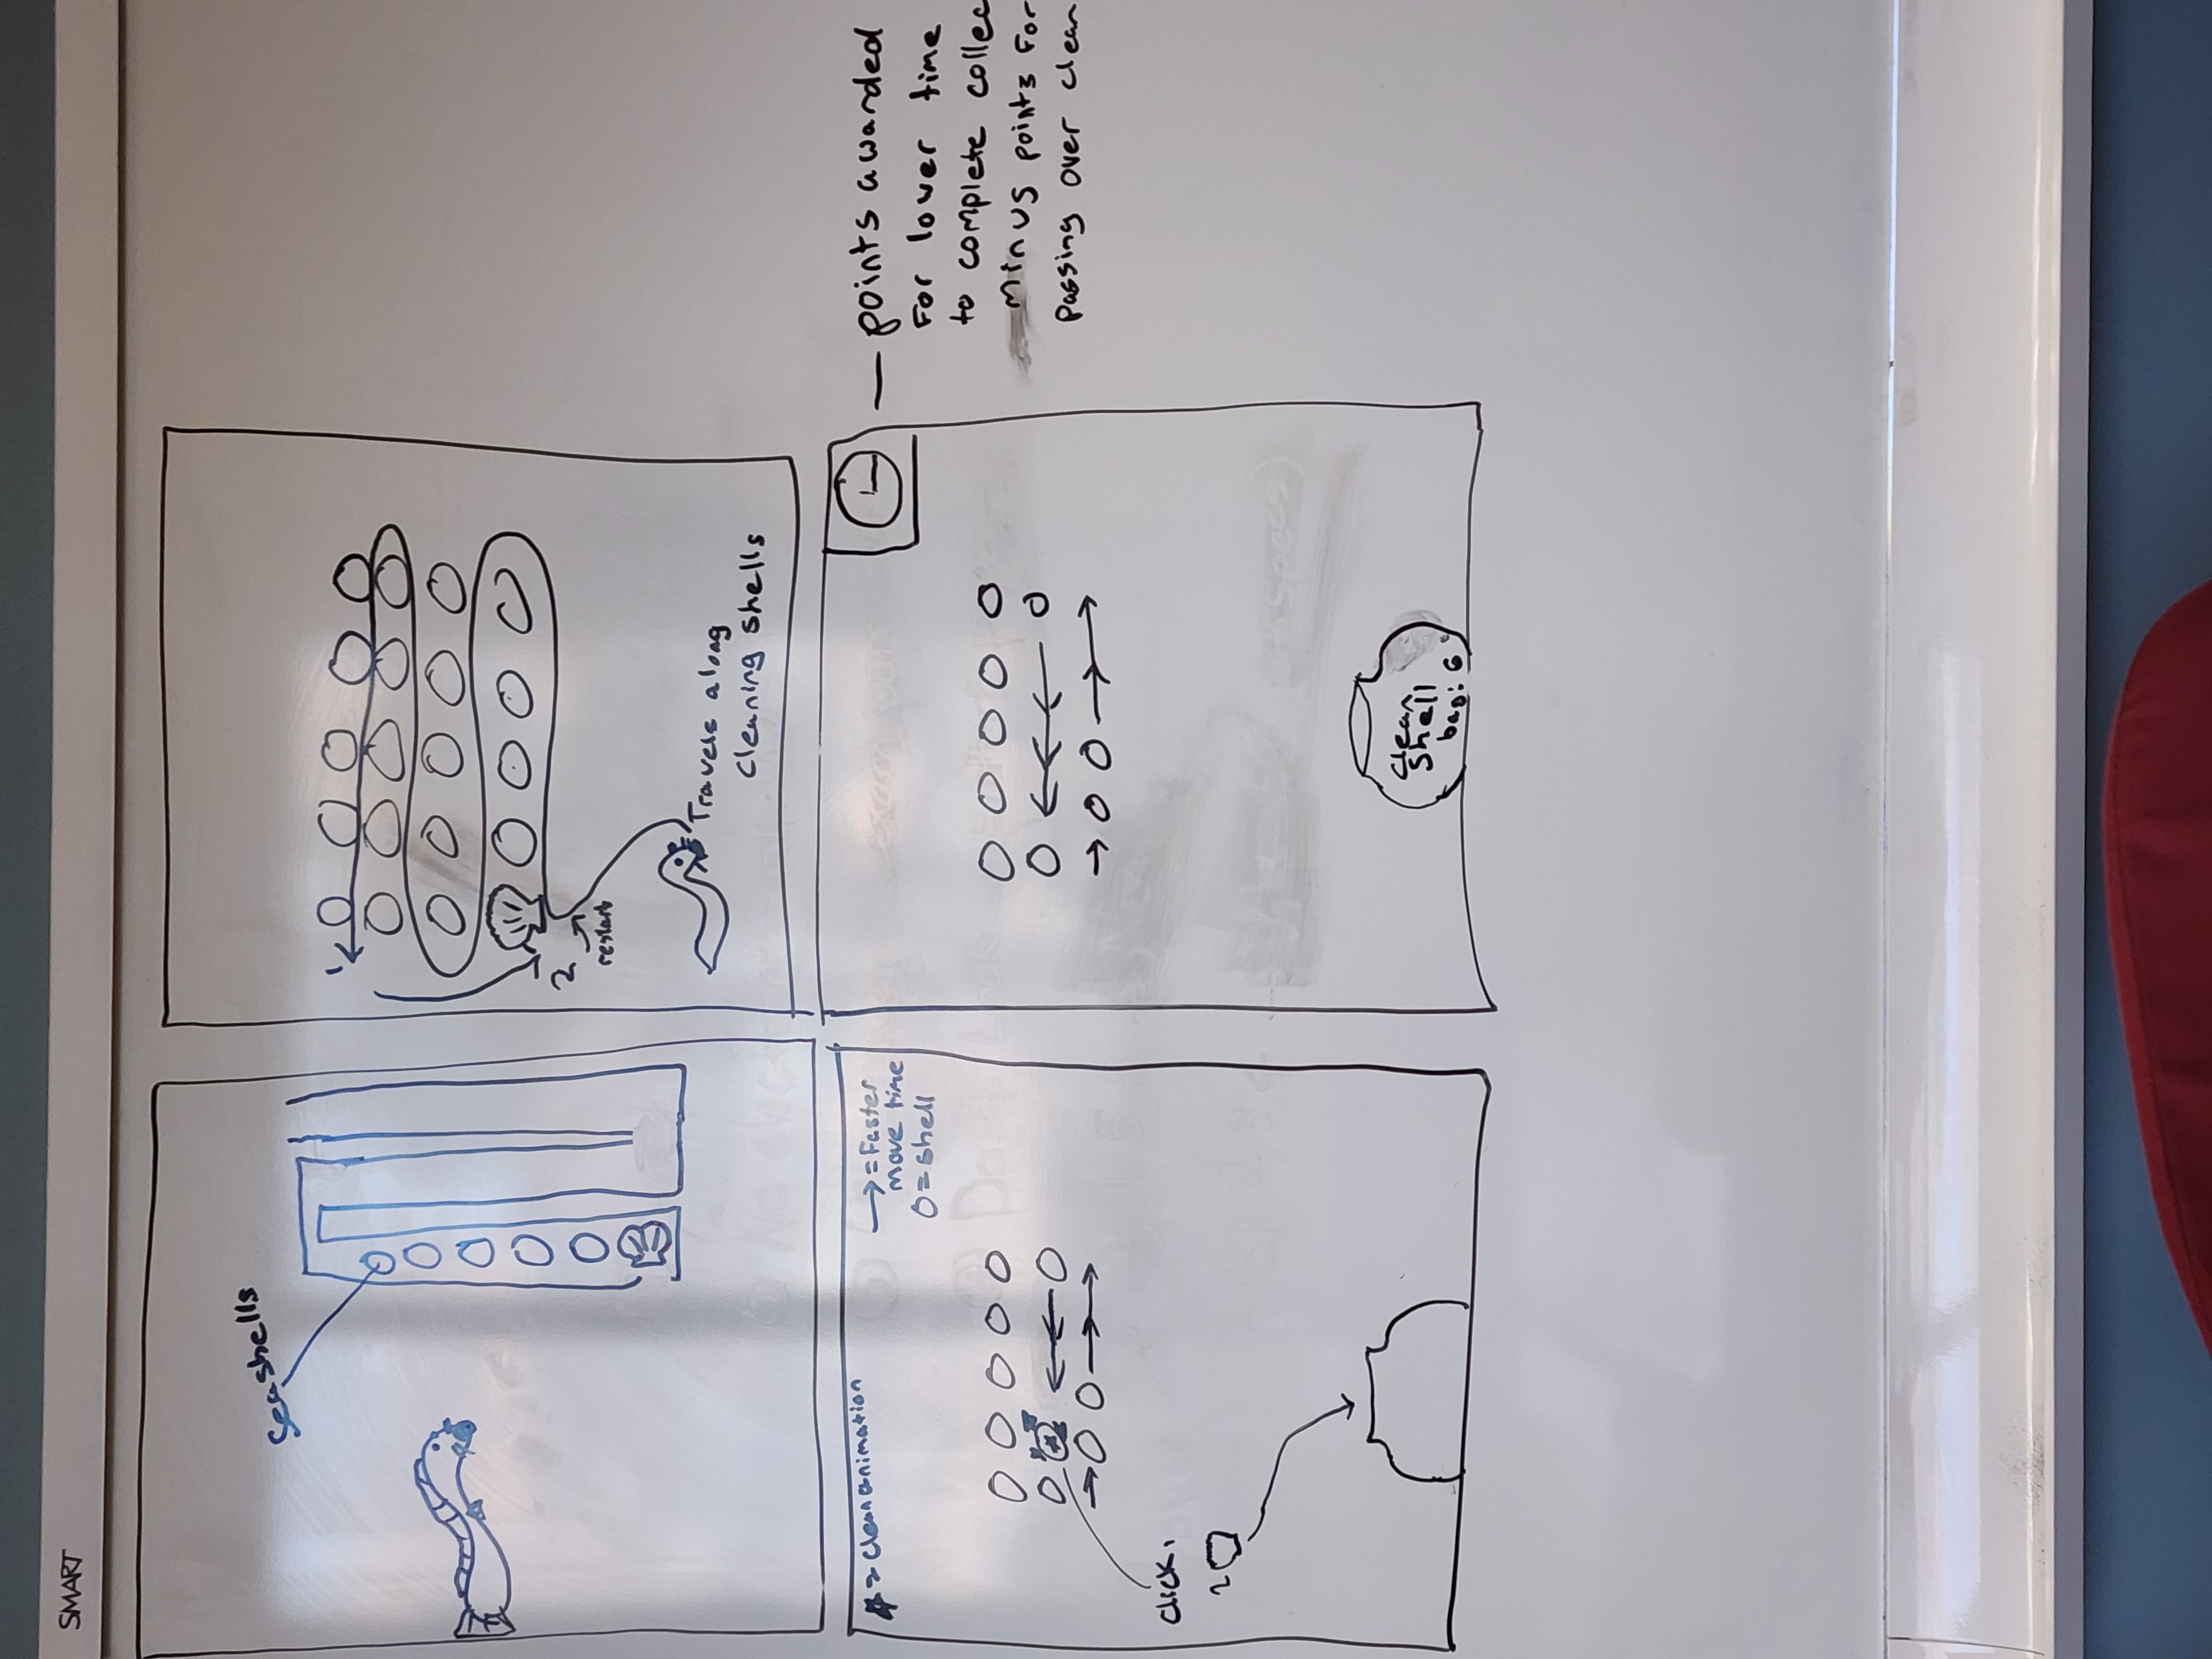 SMART
Seashells
1
2
restart
Travels along
cleaning shells
= Clean animation
= Faster
move time
O = shell
click.
2
points awarded
For lower time
to complete collec
minus points for
passing over clean
clean
shell
bag: 6